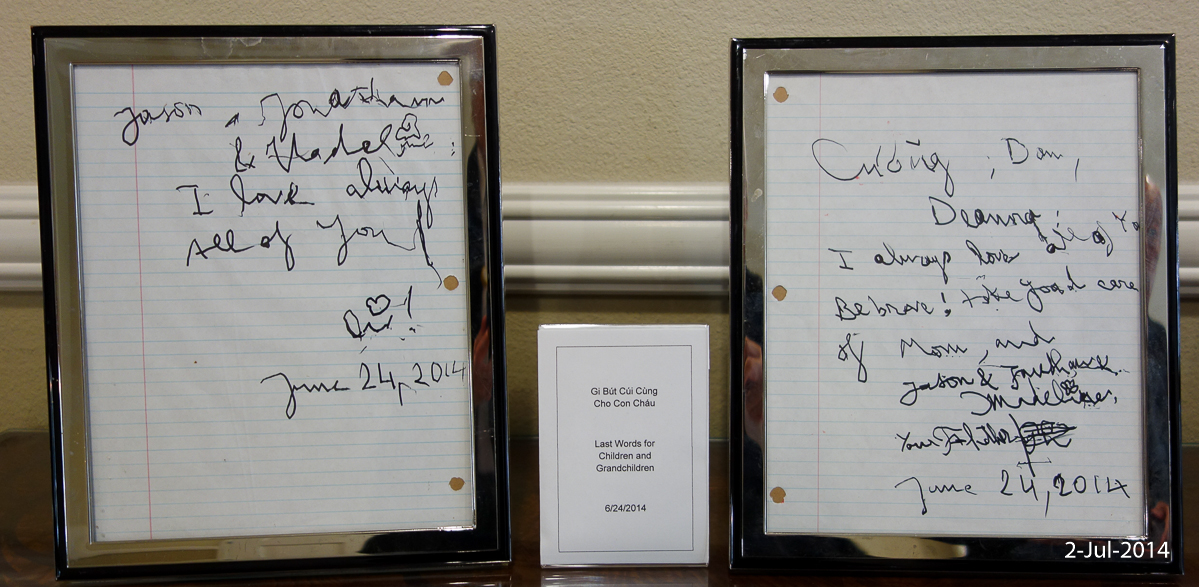 Jason, Jonathann
&
I love always
All of You!
June 24, 2014
Gi Bút Cúi Cùng
Cho Con Cháu
Last Words for
Children and
Grandchildren
6/24/2014
Cường, Dan,
Deanna,
I always love all of Yo
Be brave! take good care
of Mom, and
Jason &
Your Father
June 24, 2014
2-Jul-2014